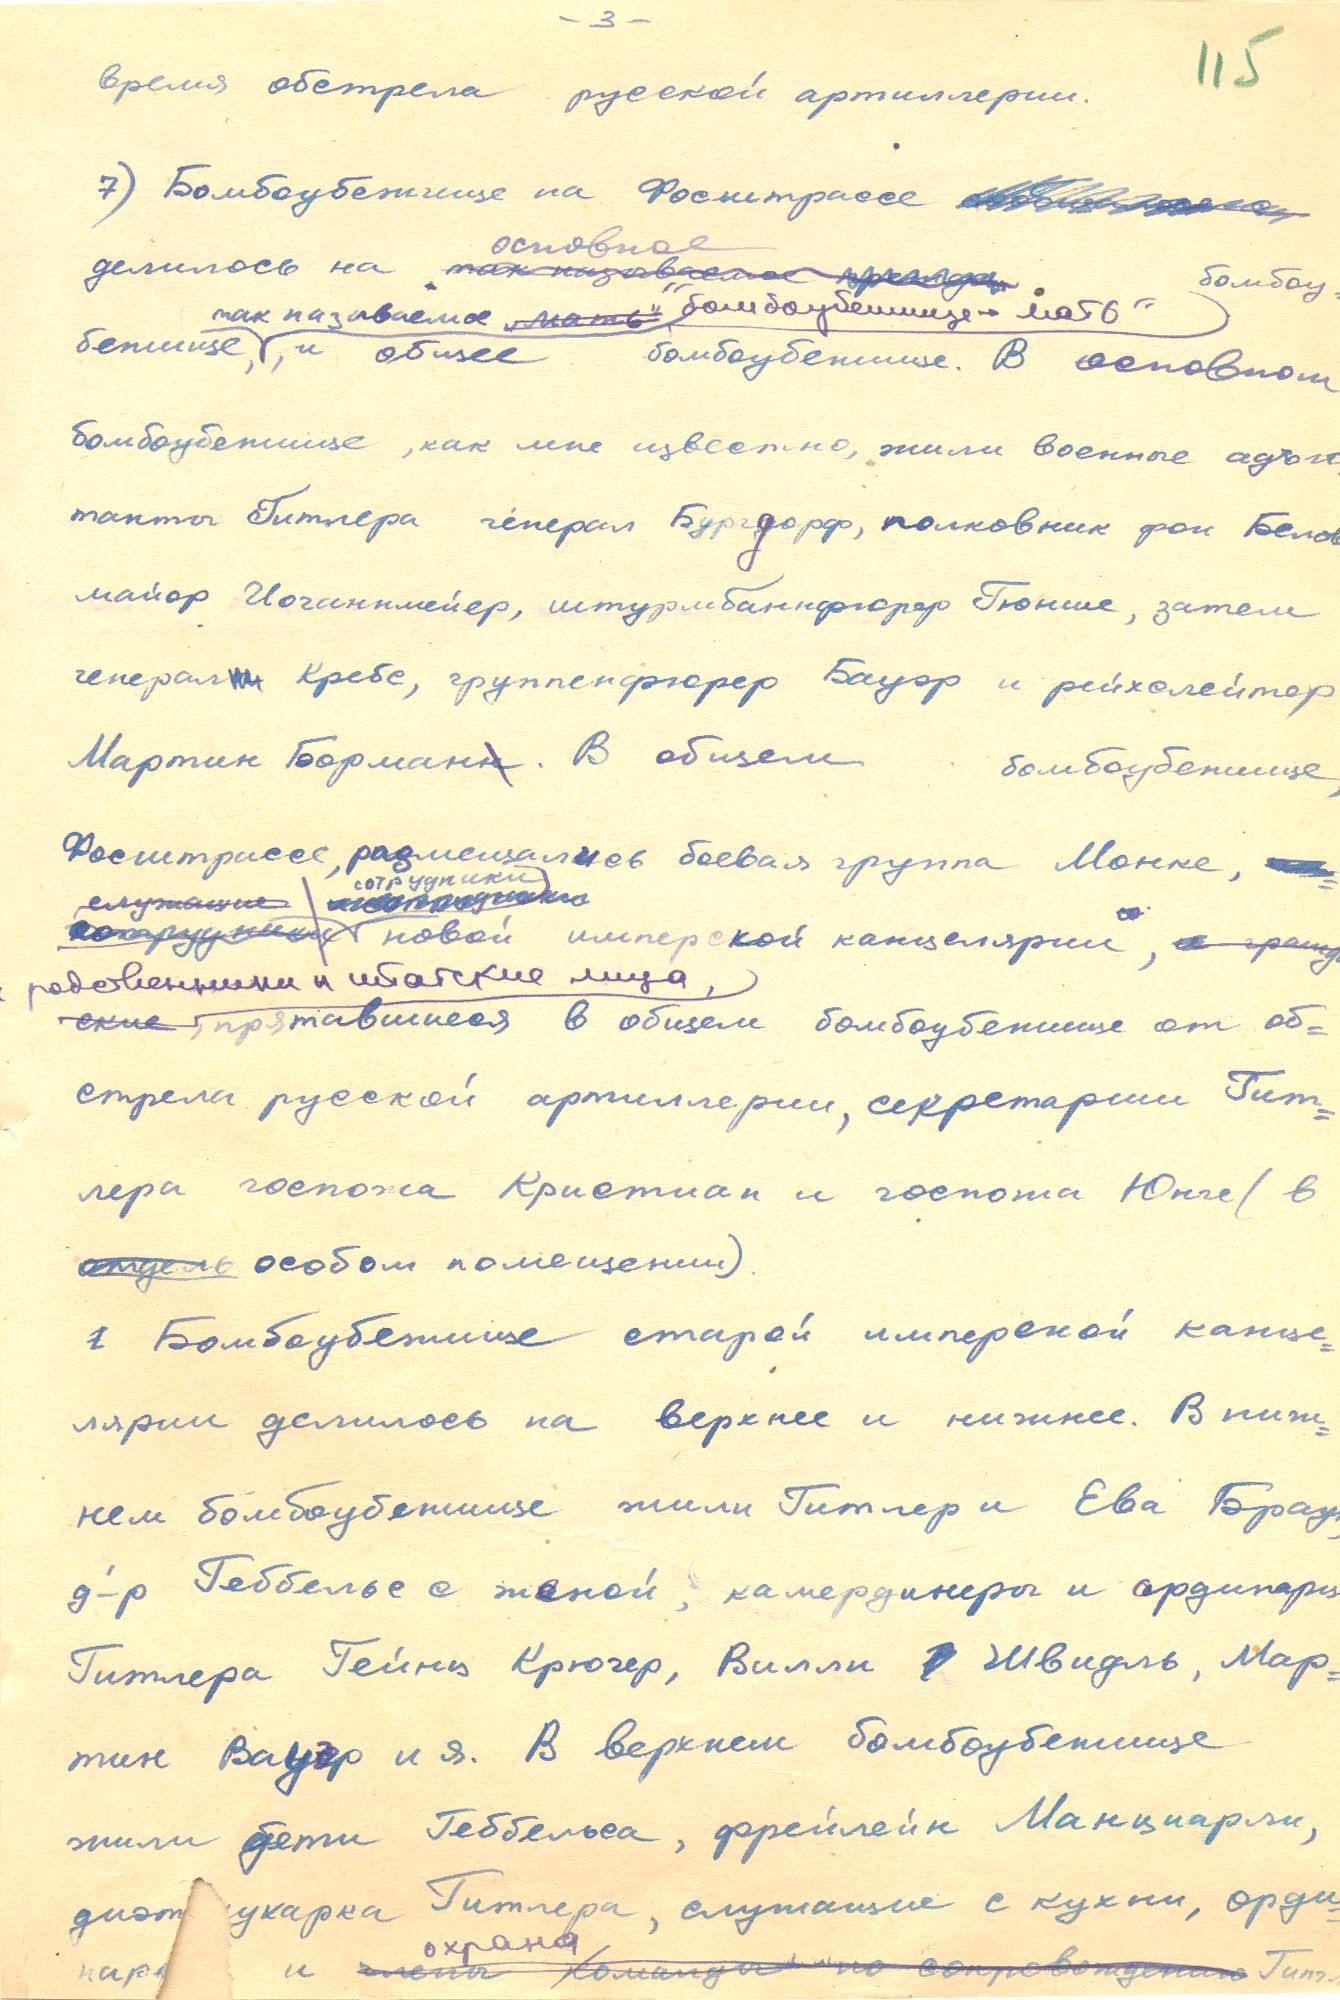 - 3 -
115
время обстрела русской артиллерии.
7) Бомбоубежище на Фосштрассе
основное
делилось на так называемое бомбоу=
так называемое „мать" "бомбоубежище - мать"
бежище, и общее бомбоубежище. В основном
бомбоубежище, как мне известно, жили военные адъю
танты Гитлера генерал Бургдорф, полковник фон Белов
майор Иоганнмейер, штурмбаннфюрер Гюнше, затем
генерал Кребс, группенфюрер Бауэр и рейхслейтер
Мартин Борман. В общем бомбоубежище,
Фосштрассе, размещались боевая группа Монке,
служащие сотрудники
сотрудники новой имперской канцелярии, и гражд
родственники и штатские лица,
ские, прятавшиеся в общем бомбоубежище от об=
стрела русской артиллерии, секретарши Гит=
лера госпожа Кристиан и госпожа Юнге (в
отдель особом помещении).
1 Бомбоубежище старой имперской канце=
лярии делилось на верхнее и нижнее. В ниж=
нем бомбоубежище жили Гитлер и Ева Браун,
д-р Геббельс с женой, камердинеры и ординарц
Гитлера Гейнц Крюгер, Вилли Швидль, Мар=
тин Вауэр и я. В верхнем бомбоубежище
жили дети Геббельса, фрейлейн Манциарли,
диэт кухарка Гитлера, служащие с кухни, орди=
охрана
нар и члены команды по сопровождению Гитл